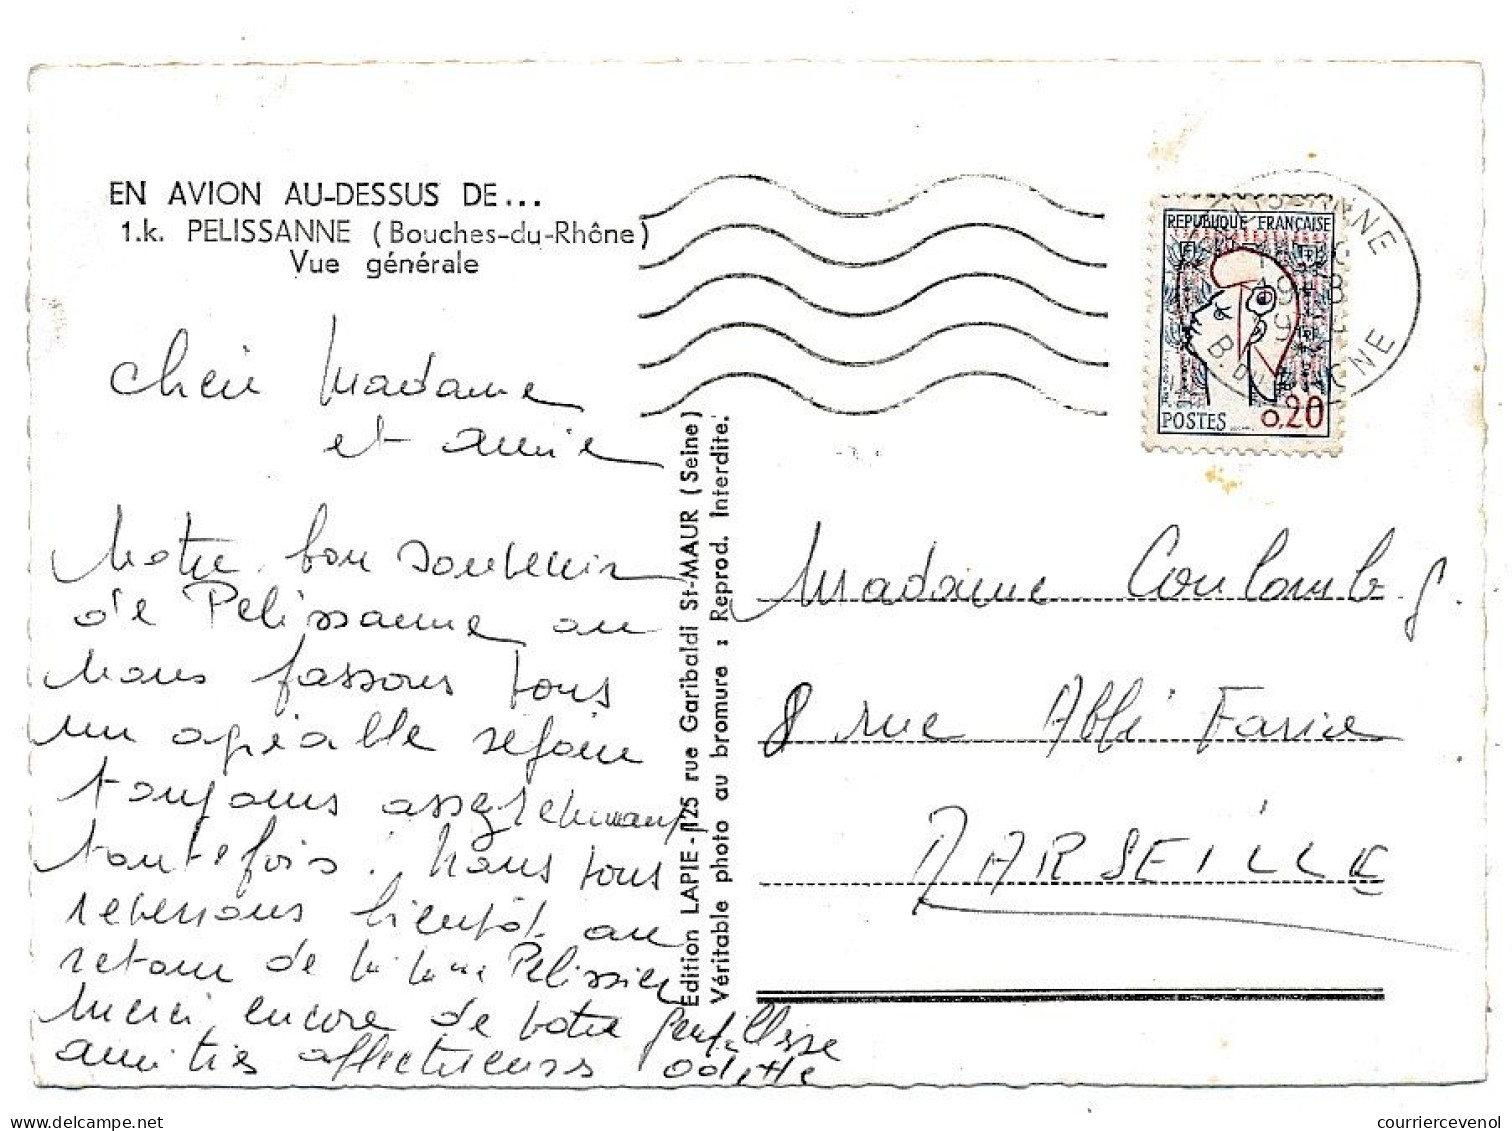 EN AVION AU-DESSUS DE...
1.k. PELISSANNE (Bouches-du-Rhône)
Vue générale
Madame
et amie
Notre bon souvenir
de Pelissanne ou
nous passons tous
un agréable séjour
toujours
toutefois. Nous vous
reverrons bientôt au
retour de Pelissier
Merci encore de votre
amitiés affectueuses Odette
Edition LAPIE - 125 rue Garibaldi St-MAUR (Seine)
Véritable photo au bromure : Reprod. Interdite.
REPUBLIQUE FRANÇAISE
POSTES 0,20
B. DU
Madame Coulomb
8 rue Abbé Faria
MARSEILLE
courriercevenol